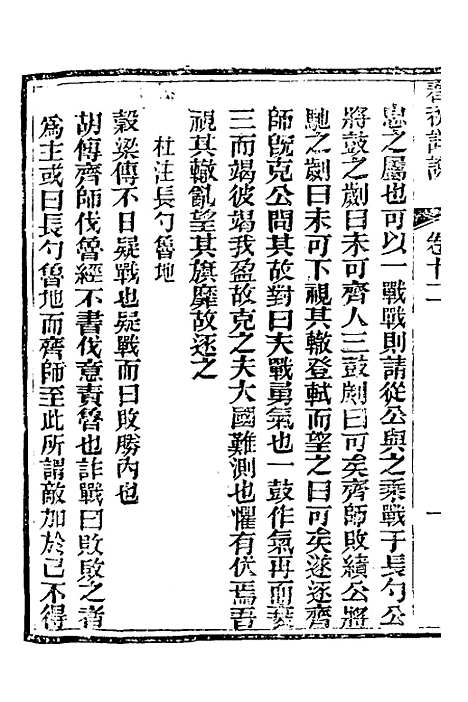 忠之屬也可以一戰戰則請從公與之乘戰于長勺公
將鼓之劌曰未可齊人三鼓劌曰可矣齊師敗績公將
馳之劌曰未可下視其轍登軾而望之曰可矣遂逐齊
師旣克公問其故對曰夫戰勇氣也一鼓作氣再而衰
三而竭彼竭我盈故克之夫大國難測也懼有伏焉吾
視其轍亂望其旗靡故逐之
杜注長勺魯地
穀梁傳不日疑戰也疑戰而曰敗勝內也
胡傳齊師伐魯經不書伐意責魯也詐戰曰敗敗之者
爲主或曰長勺魯地而齊師至此所謂敵加於己不得
卷十二
一